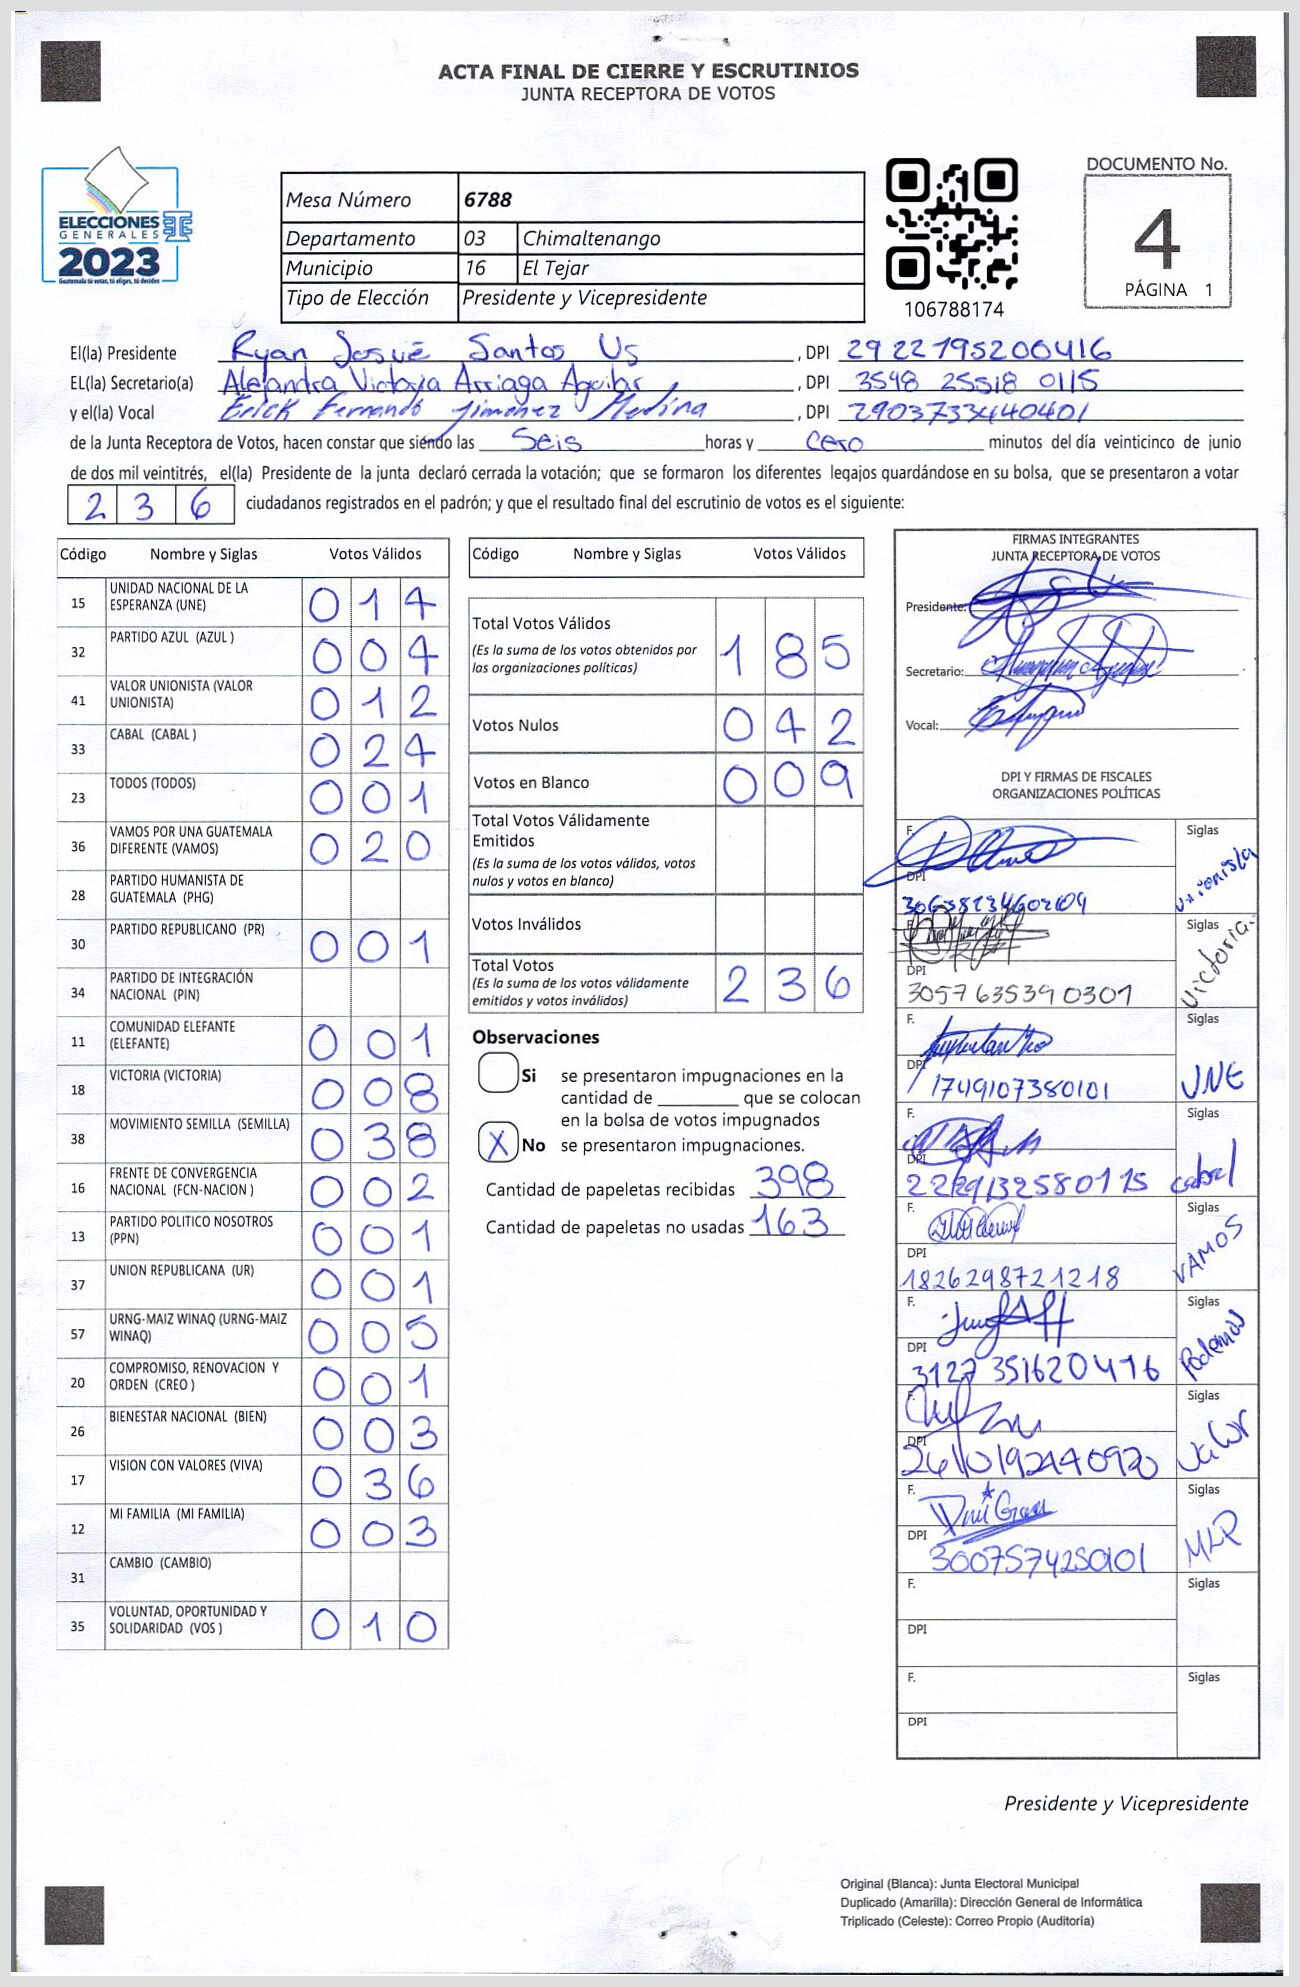 ACTA FINAL DE CIERRE Y ESCRUTINIOS
JUNTA RECEPTORA DE VOTOS
ELECCIONES
GENERALES
2023
Guatemala tú votas, tú eliges, tú decides
Mesa Número 6788
Departamento 03 Chimaltenango
Municipio 16 El Tejar
Tipo de Elección Presidente y Vicepresidente
106788174
DOCUMENTO No.
4
PÁGINA 1
El(la) Presidente Ryan Josué Santos Us, DPI 2922195200416
EL(la) Secretario(a) Alejandra Victoria Arriaga Aguilar, DPI 3548 25518 0115
y el(la) Vocal Erick Fernando Jimenez Medina, DPI 2903733440401
de la Junta Receptora de Votos, hacen constar que siendo las Seis horas y Cero minutos del día veinticinco de junio
de dos mil veintitrés, el(la) Presidente de la junta declaró cerrada la votación; que se formaron los diferentes legajos guardándose en su bolsa, que se presentaron a votar
236 ciudadanos registrados en el padrón; y que el resultado final del escrutinio de votos es el siguiente:
Código Nombre y Siglas Votos Válidos
15 UNIDAD NACIONAL DE LA ESPERANZA (UNE) 014
32 PARTIDO AZUL (AZUL ) 004
41 VALOR UNIONISTA (VALOR UNIONISTA) 012
33 CABAL (CABAL ) 024
23 TODOS (TODOS) 001
36 VAMOS POR UNA GUATEMALA DIFERENTE (VAMOS) 020
28 PARTIDO HUMANISTA DE GUATEMALA (PHG)
30 PARTIDO REPUBLICANO (PR) 001
34 PARTIDO DE INTEGRACIÓN NACIONAL (PIN)
11 COMUNIDAD ELEFANTE (ELEFANTE) 001
18 VICTORIA (VICTORIA) 008
38 MOVIMIENTO SEMILLA (SEMILLA) 038
16 FRENTE DE CONVERGENCIA NACIONAL (FCN-NACION ) 002
13 PARTIDO POLITICO NOSOTROS (PPN) 001
37 UNION REPUBLICANA (UR) 001
57 URNG-MAIZ WINAQ (URNG-MAIZ WINAQ) 005
20 COMPROMISO, RENOVACION Y ORDEN (CREO ) 001
26 BIENESTAR NACIONAL (BIEN) 003
17 VISION CON VALORES (VIVA) 036
12 MI FAMILIA (MI FAMILIA) 003
31 CAMBIO (CAMBIO)
35 VOLUNTAD, OPORTUNIDAD Y SOLIDARIDAD (VOS ) 010
Código Nombre y Siglas Votos Válidos
Total Votos Válidos 185
(Es la suma de los votos obtenidos por
las organizaciones políticas)
Votos Nulos 042
Votos en Blanco 009
Total Votos Válidamente
Emitidos
(Es la suma de los votos válidos, votos
nulos y votos en blanco)
Votos Inválidos
Total Votos 236
(Es la suma de los votos válidamente
emitidos y votos inválidos)
Observaciones
Si se presentaron impugnaciones en la
cantidad de ________ que se colocan
en la bolsa de votos impugnados
X No se presentaron impugnaciones.
Cantidad de papeletas recibidas 398
Cantidad de papeletas no usadas 163
FIRMAS INTEGRANTES
JUNTA RECEPTORA DE VOTOS
Presidente:
Secretario:
Vocal:
DPI Y FIRMAS DE FISCALES
ORGANIZACIONES POLÍTICAS
F. Siglas
DPI Unionista
F. Siglas
DPI Victoria.
3057635390301
F. Siglas
DPI
1749107380101 UNE
F. Siglas
DPI
cabal
F. Siglas
DPI
1826298721218 VAMOS
F. Siglas
DPI
3127351620416 Podemos
F. Siglas
DPI
Valor
F. Siglas
DPI
3007574250101 MLP
F. Siglas
DPI
F. Siglas
DPI
Presidente y Vicepresidente
Original (Blanca): Junta Electoral Municipal
Duplicado (Amarilla): Dirección General de Informática
Triplicado (Celeste): Correo Propio (Auditoría)